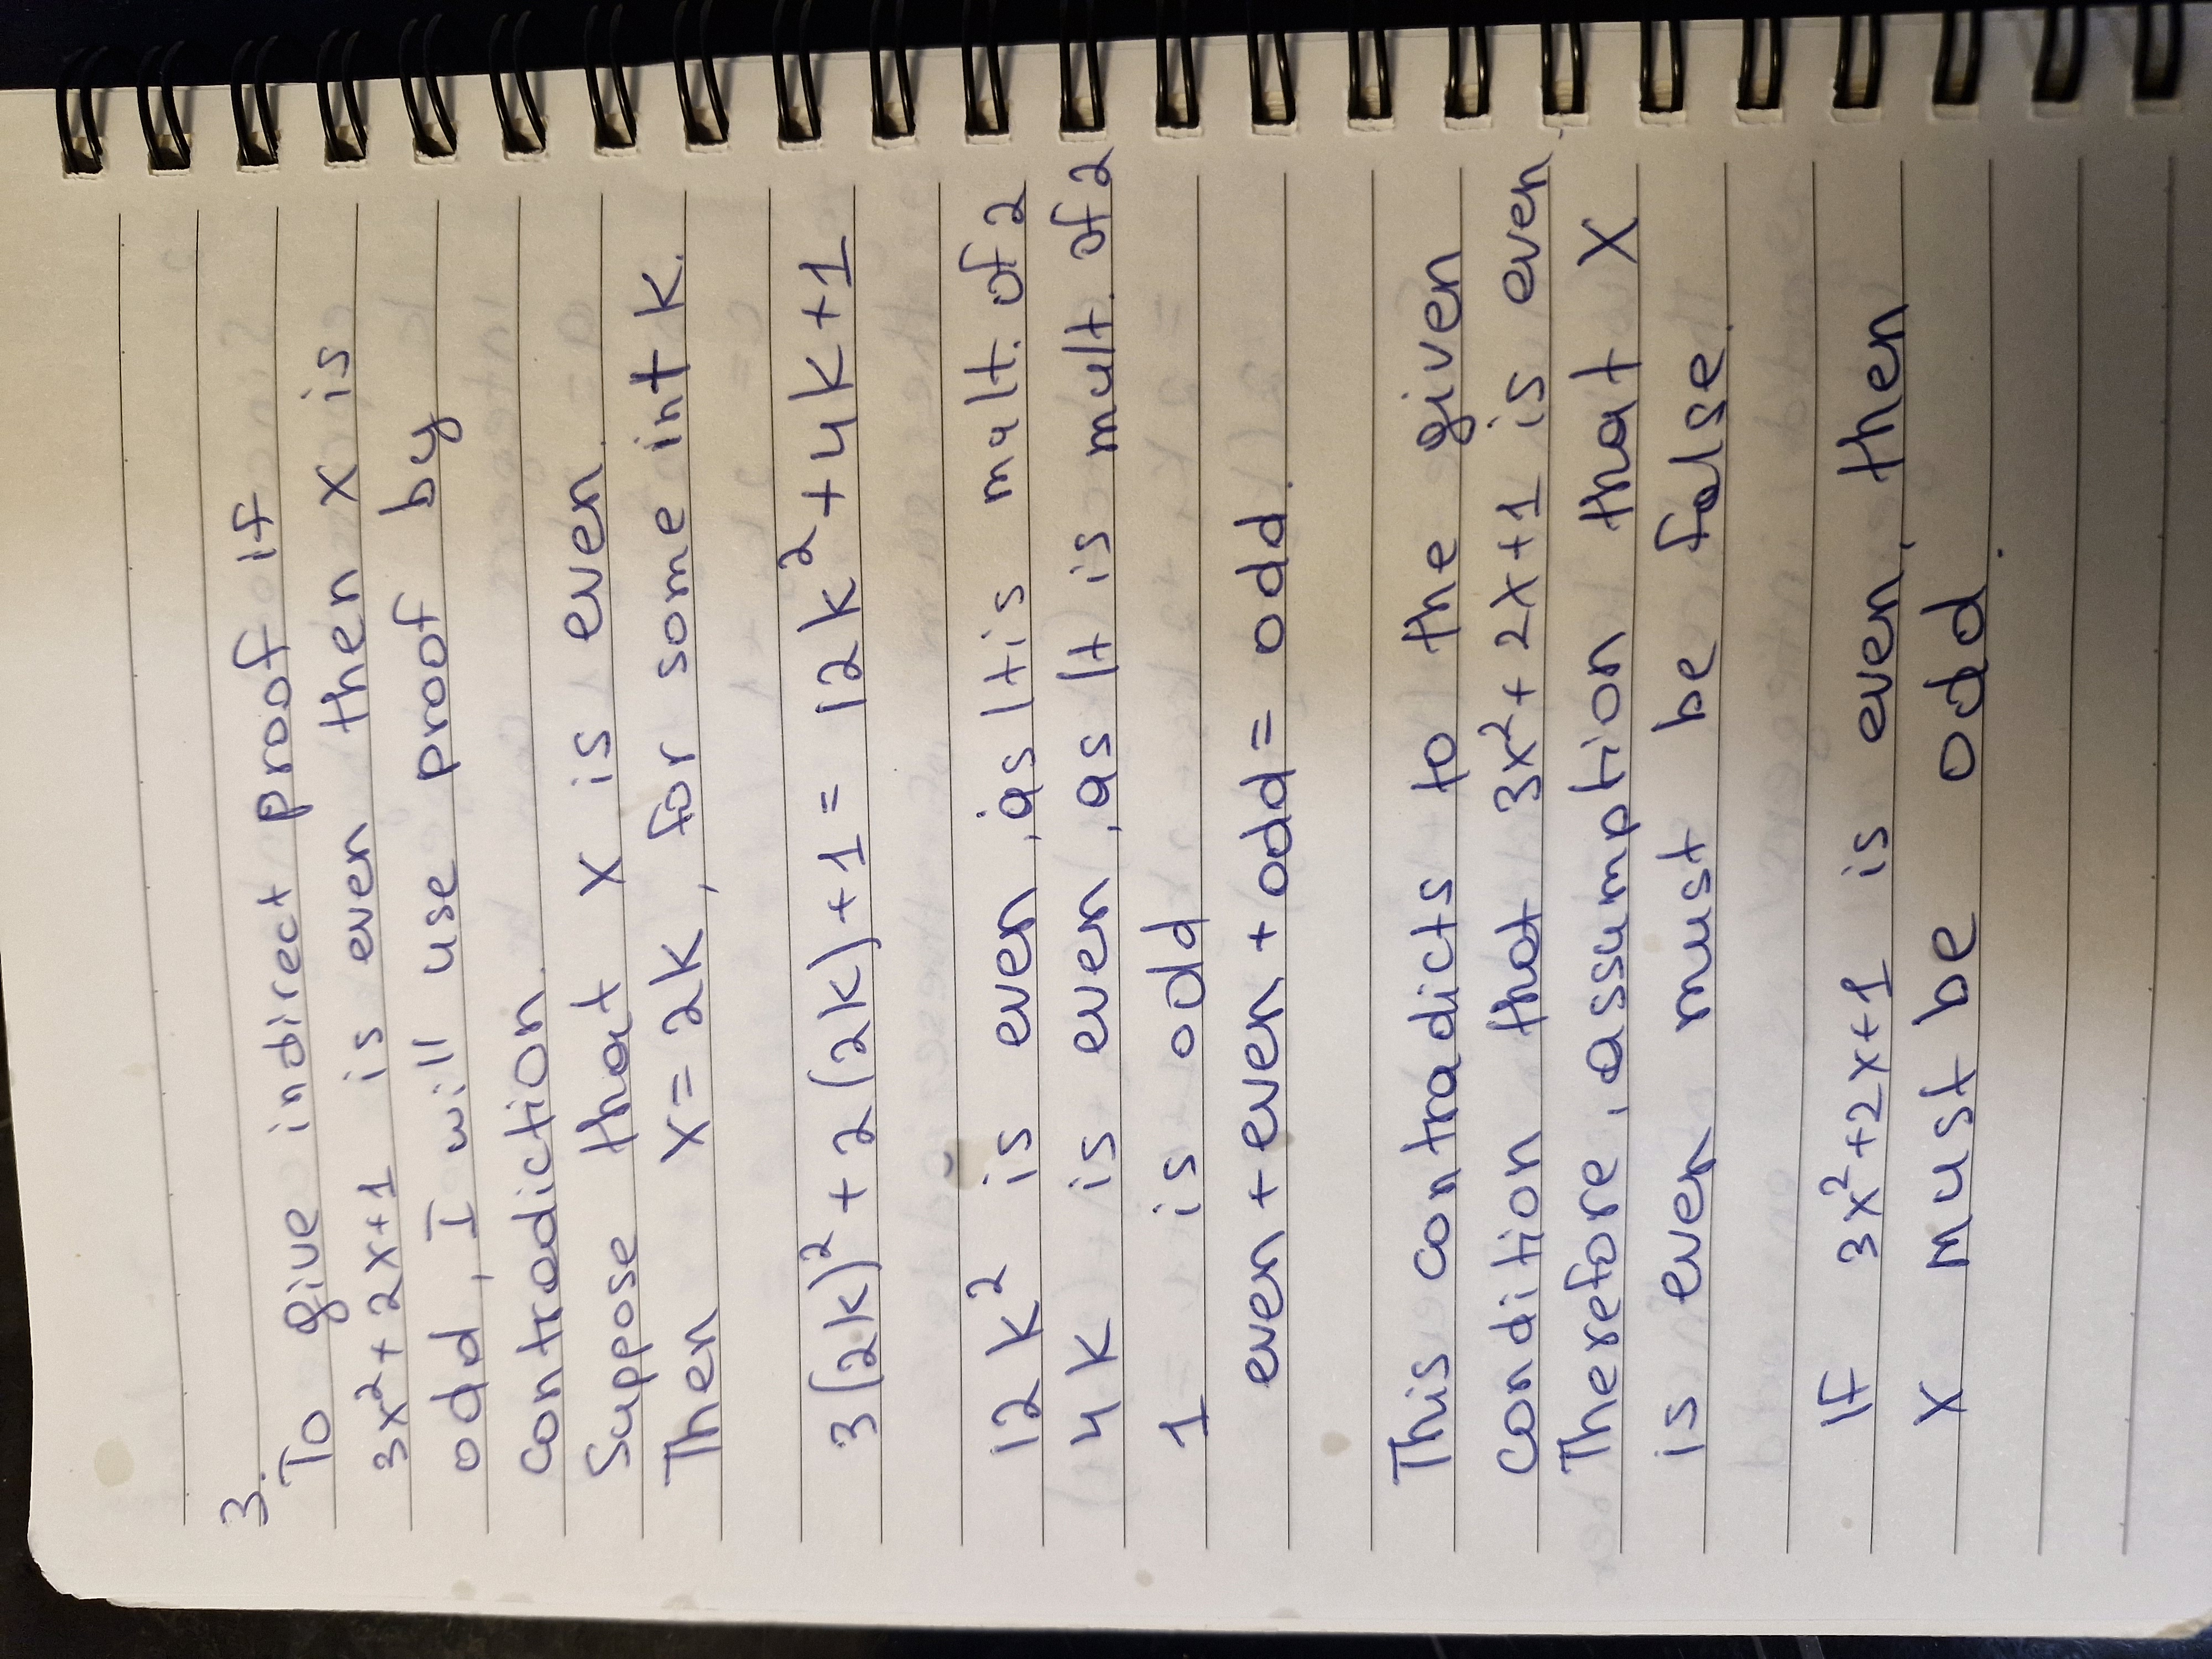 3.
To give indirect proof if
3x²+2x+1 is even then x is
odd, I will use proof by
contradiction.
Suppose that x is even.
Then x=2k, for some int k.
3(2k)²+2(2k)+1= 12k²+4k+1
12k² is even, as It is mult. of 2
4k is even, as It is mult. of 2
1 is odd
even + even + odd = odd.
This contradicts to the given
condition that 3x²+2x+1 is even.
Therefore, assumption that x
is even must be false.
If 3x²+2x+1 is even, then
x must be odd.